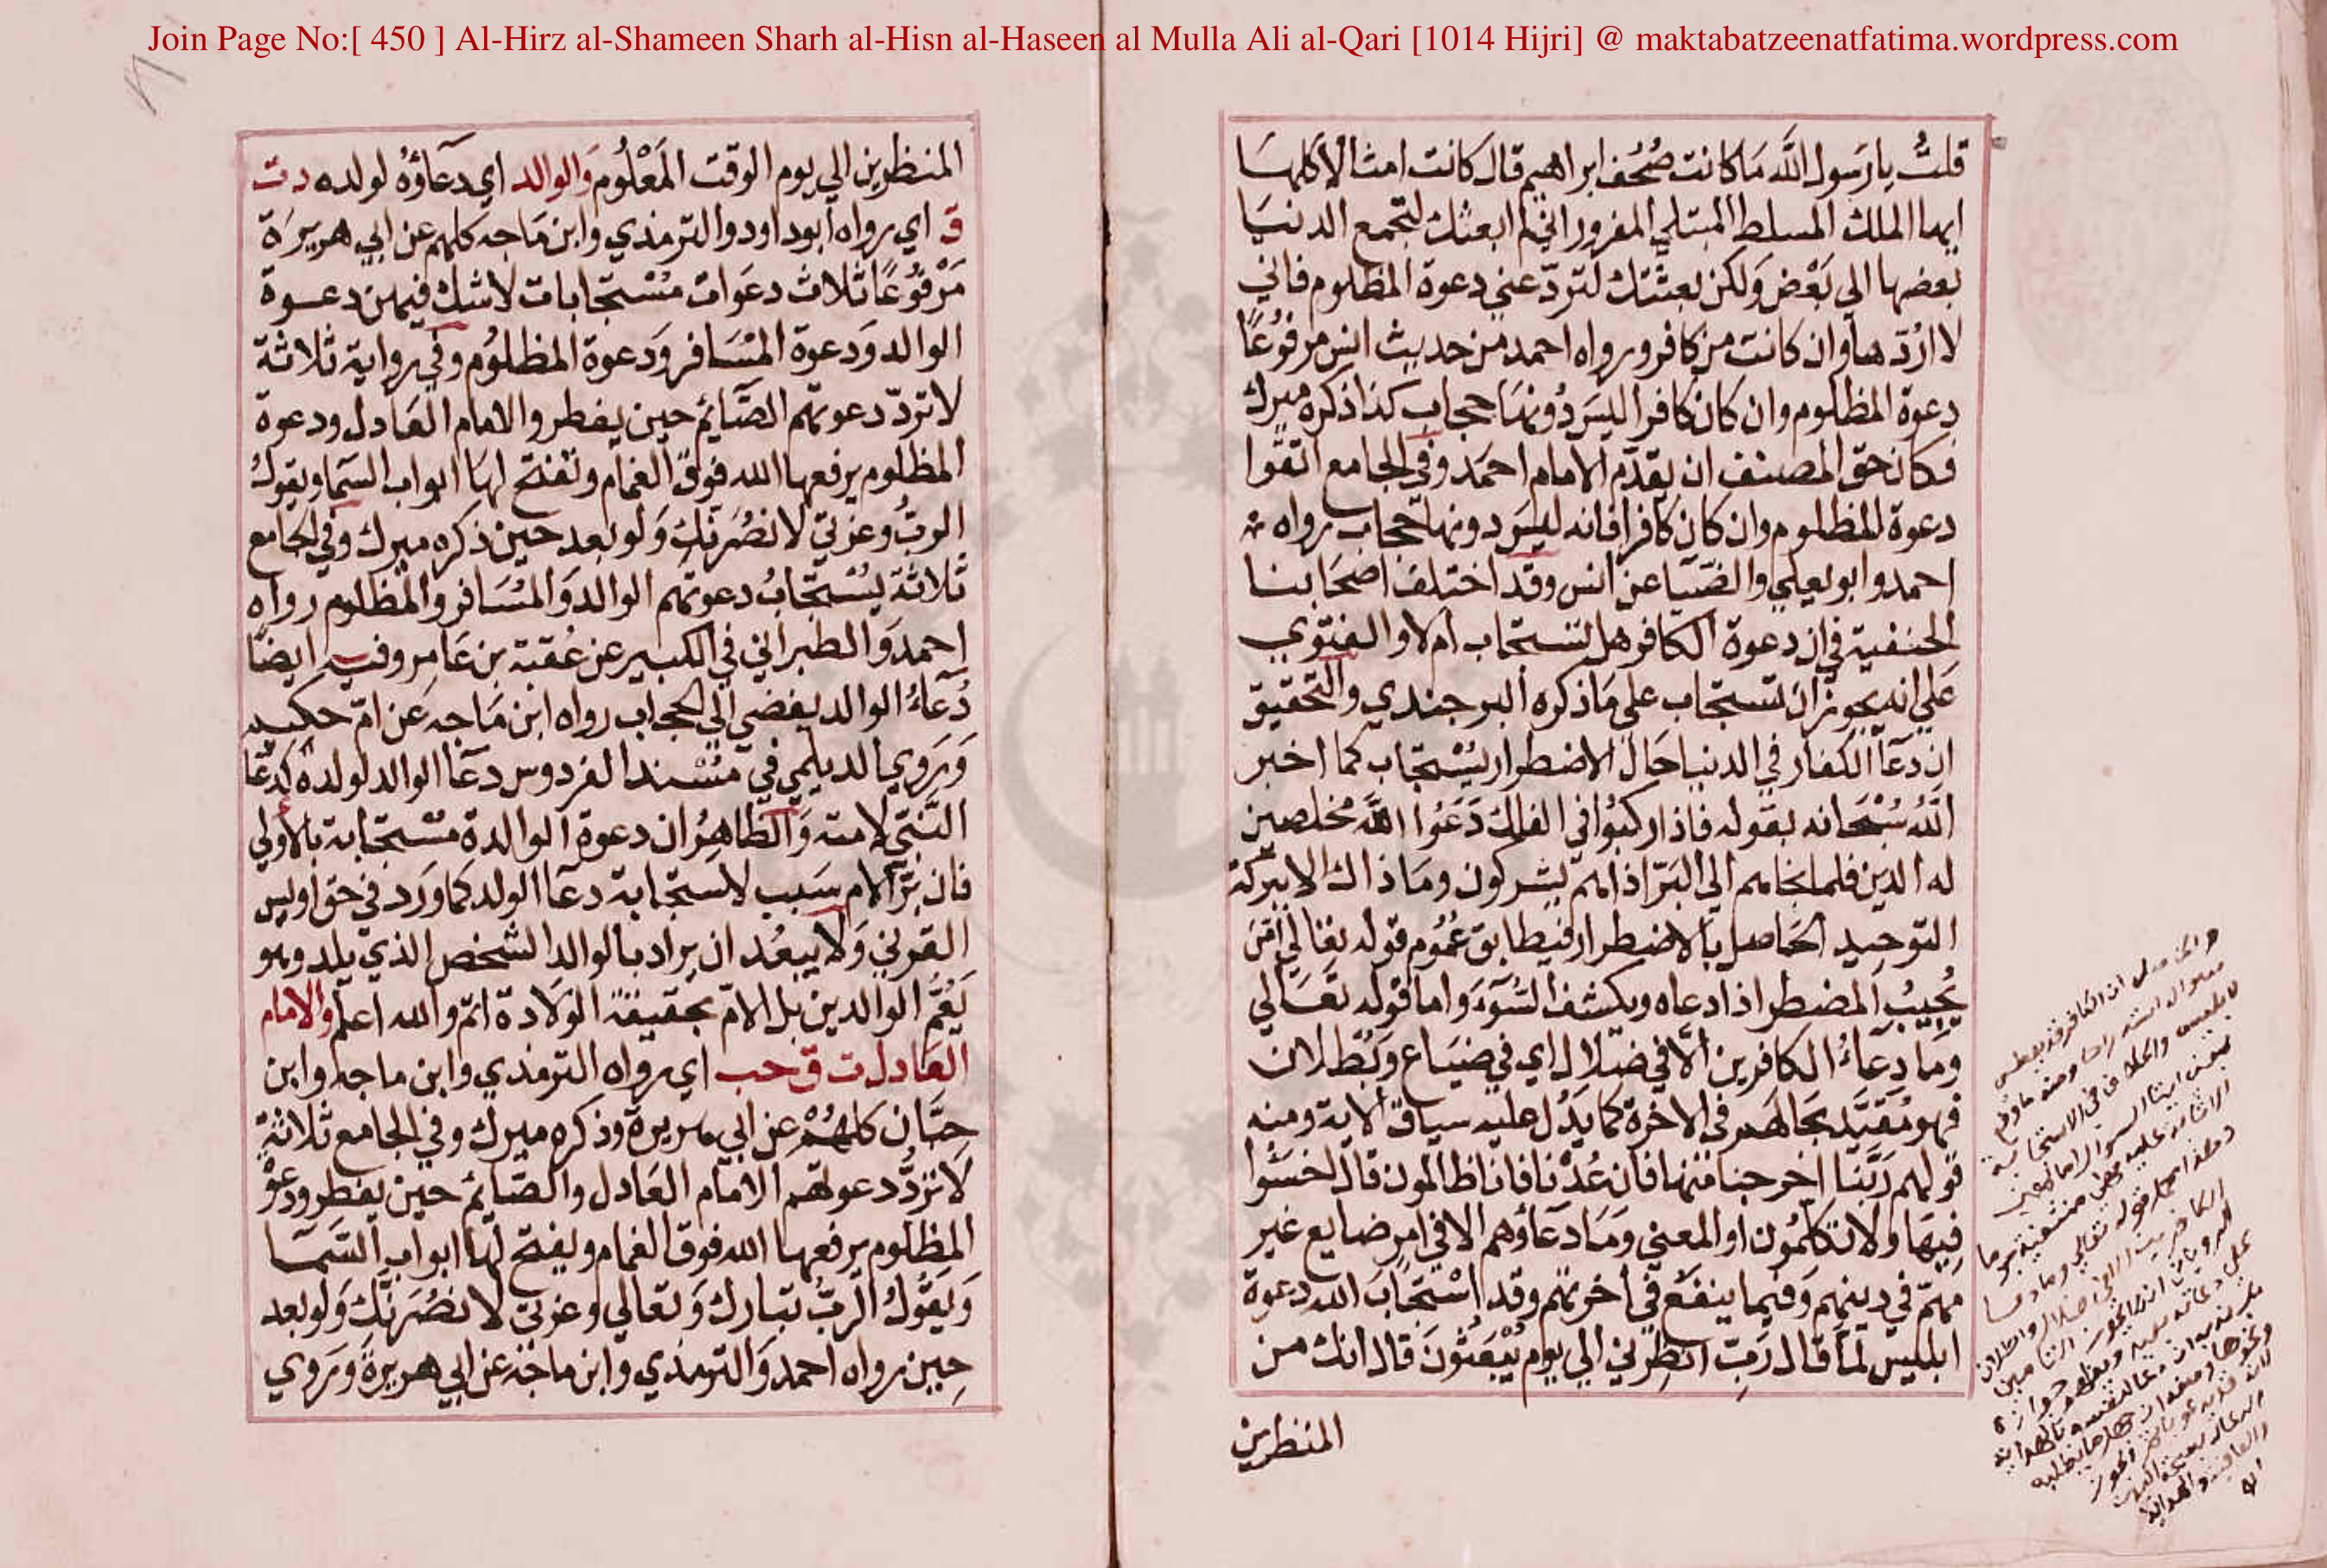 Join Page No:[ 450 ] Al-Hirz al-Shameen Sharh al-Hisn al-Haseen al Mulla Ali al-Qari [1014 Hijri] @ maktabatzeenatfatima.wordpress.com
قلتُ يا رَسول اللَّه مَا كانت صُحُف ابراهيم قال كانت امثالا كلها
ايها الملك المسلط المبتلي المغرور اني لم ابعثك لتجمع الدنيَا
بعضها الي بَعْض وَلكن بعثتك لتردّ عني دعوة المظلوم فاني
لا اردّها وان كانت من كافر ورواه احمد من حديث انس مرفُوعًا
دعوة المظلوم وان كان كافرا ليسَ دُونهَا حجاب كذا ذكره ميرك
فكان حق المصنف ان يقدّم الامام احمَد وفي الجامع اتقوا
دعوة المظلوم وان كان كافرا فانه ليسَ دونها حجاب رواه
احمد وابو يعلي والضيَا عن انس وقد اختلف اصحَابنا
الحنفية في ان دعوة الكافر هل تستجاب ام لا والفتوي
عَلي انه يجوز ان تستجاب علي مَا ذكره البرجندي والتحقيق
ان دعآ الكفار في الدنيا حَال الاضطرار يُسْتجاب كما اخبر
اللَّهُ سُبْحَانه بقوله فاذا ركبُوا في الفلك دَعَوُا اللَّه مخلصين
له الدين فلما نجاهم الي البَرّ اذا هم يشركون ومَا ذاك الا ببركة
التوحيد الحَاصل بالاضطرار فيطابق عُمُوم قوله تعَالي امّن
يُجيبُ المضطر اذا دعاه ويكشف السُّوٓءَ واما قوله تعَالي
وَمَا دعَآءُ الكافرين الَّا في ضَلال اي في ضيَاع وبُطلان
فهو مُقيَّد بحَالهم في الاخرة كما يَدُل عليه سياق الاية ومنه
قولهم رَبَّنا اخرجنا منها فان عُدْنا فانا ظالمون قال اخسَئُوا
فيهَا ولا تكلمُون او المعني ومَا دعَآؤهم الا في امر ضايع غير
مهمّ في دينهم وَفيما ينفَعُ في اخرتهم وقد اسْتجَابَ الله دعوة
ابليس لما قال رَبّ انظِرني الي يوم يُبْعَثُونَ قال انك من
المنظرين
المنظرين الي يوم الوقت المَعْلُوم وَالوالد اي دعَآؤهُ لولده د ت
ق اي رواه ابو داود والترمذي وابن مَاجه كلهم عن ابي هريرَة
مَرْفُوعًا ثلاث دعَوات مُسْتجابات لا شك فيهن دعوة
الوالد وَدعوة المُسَافر وَدعوة المظلوُم وفي رواية ثلاثة
لا تردّ دعوتهم الصَّايم حين يفطر والامام العَادل ودعوة
المظلوم يرفعها الله فوق الغمام وتفتح لهَا ابواب السّما ويقول
الربُّ وعزتي لانصُرَنكِ وَلو بعد حين ذكره ميرك وفي الجامع
ثلاثة يُسْتجَابُ دعوتهم الوالد وَالمُسَافر والمظلوم رواه
احمد وَالطبراني في الكبير عن عُقبة بن عَامر وفيه ايضًا
دُعَآءُ الوالد يفضي الي الحجاب رواه ابن مَاجه عَن امّ حكيم
وَرَوي الديلمي في مُسْند الفردوس دعآ الوالد لولده كدعَا
النَّبيّ لامته وَالظاهرُ ان دعوة الوالدة مسْتجابة بالاولي
فان برّ الام سَبب لاسْتجابة دعآ الولد كما وَرَد في حق اويس
القرني وَلا يبعُد ان يراد بالوالد الشخص الذي يلد وهو
يَعُمّ الوالدين بل الامّ بحقيقة الوَلادة اتم والله اعلم والامام
العَادل ت ق حب اي رواه الترمذي وابن ماجه وابن
حبَّان كلهُمْ عن ابي هريرة وذكره ميرك وفي الجامع ثلاثة
لا تردُّ دعوتهم الامام العَادل والصَّايم حين يفطر ودعوَة
المظلوم يرفعها الله فوق الغمام ويفتح لهَا ابواب السَّمَا
وَيَقُولُ الربُّ تبارك وَتعالي وعزتي لانصُرَنَّك وَلو بعد
حِين رواه احمد وَالترمذي وابن ماجَه عن ابي هريرةَ وَرَوي